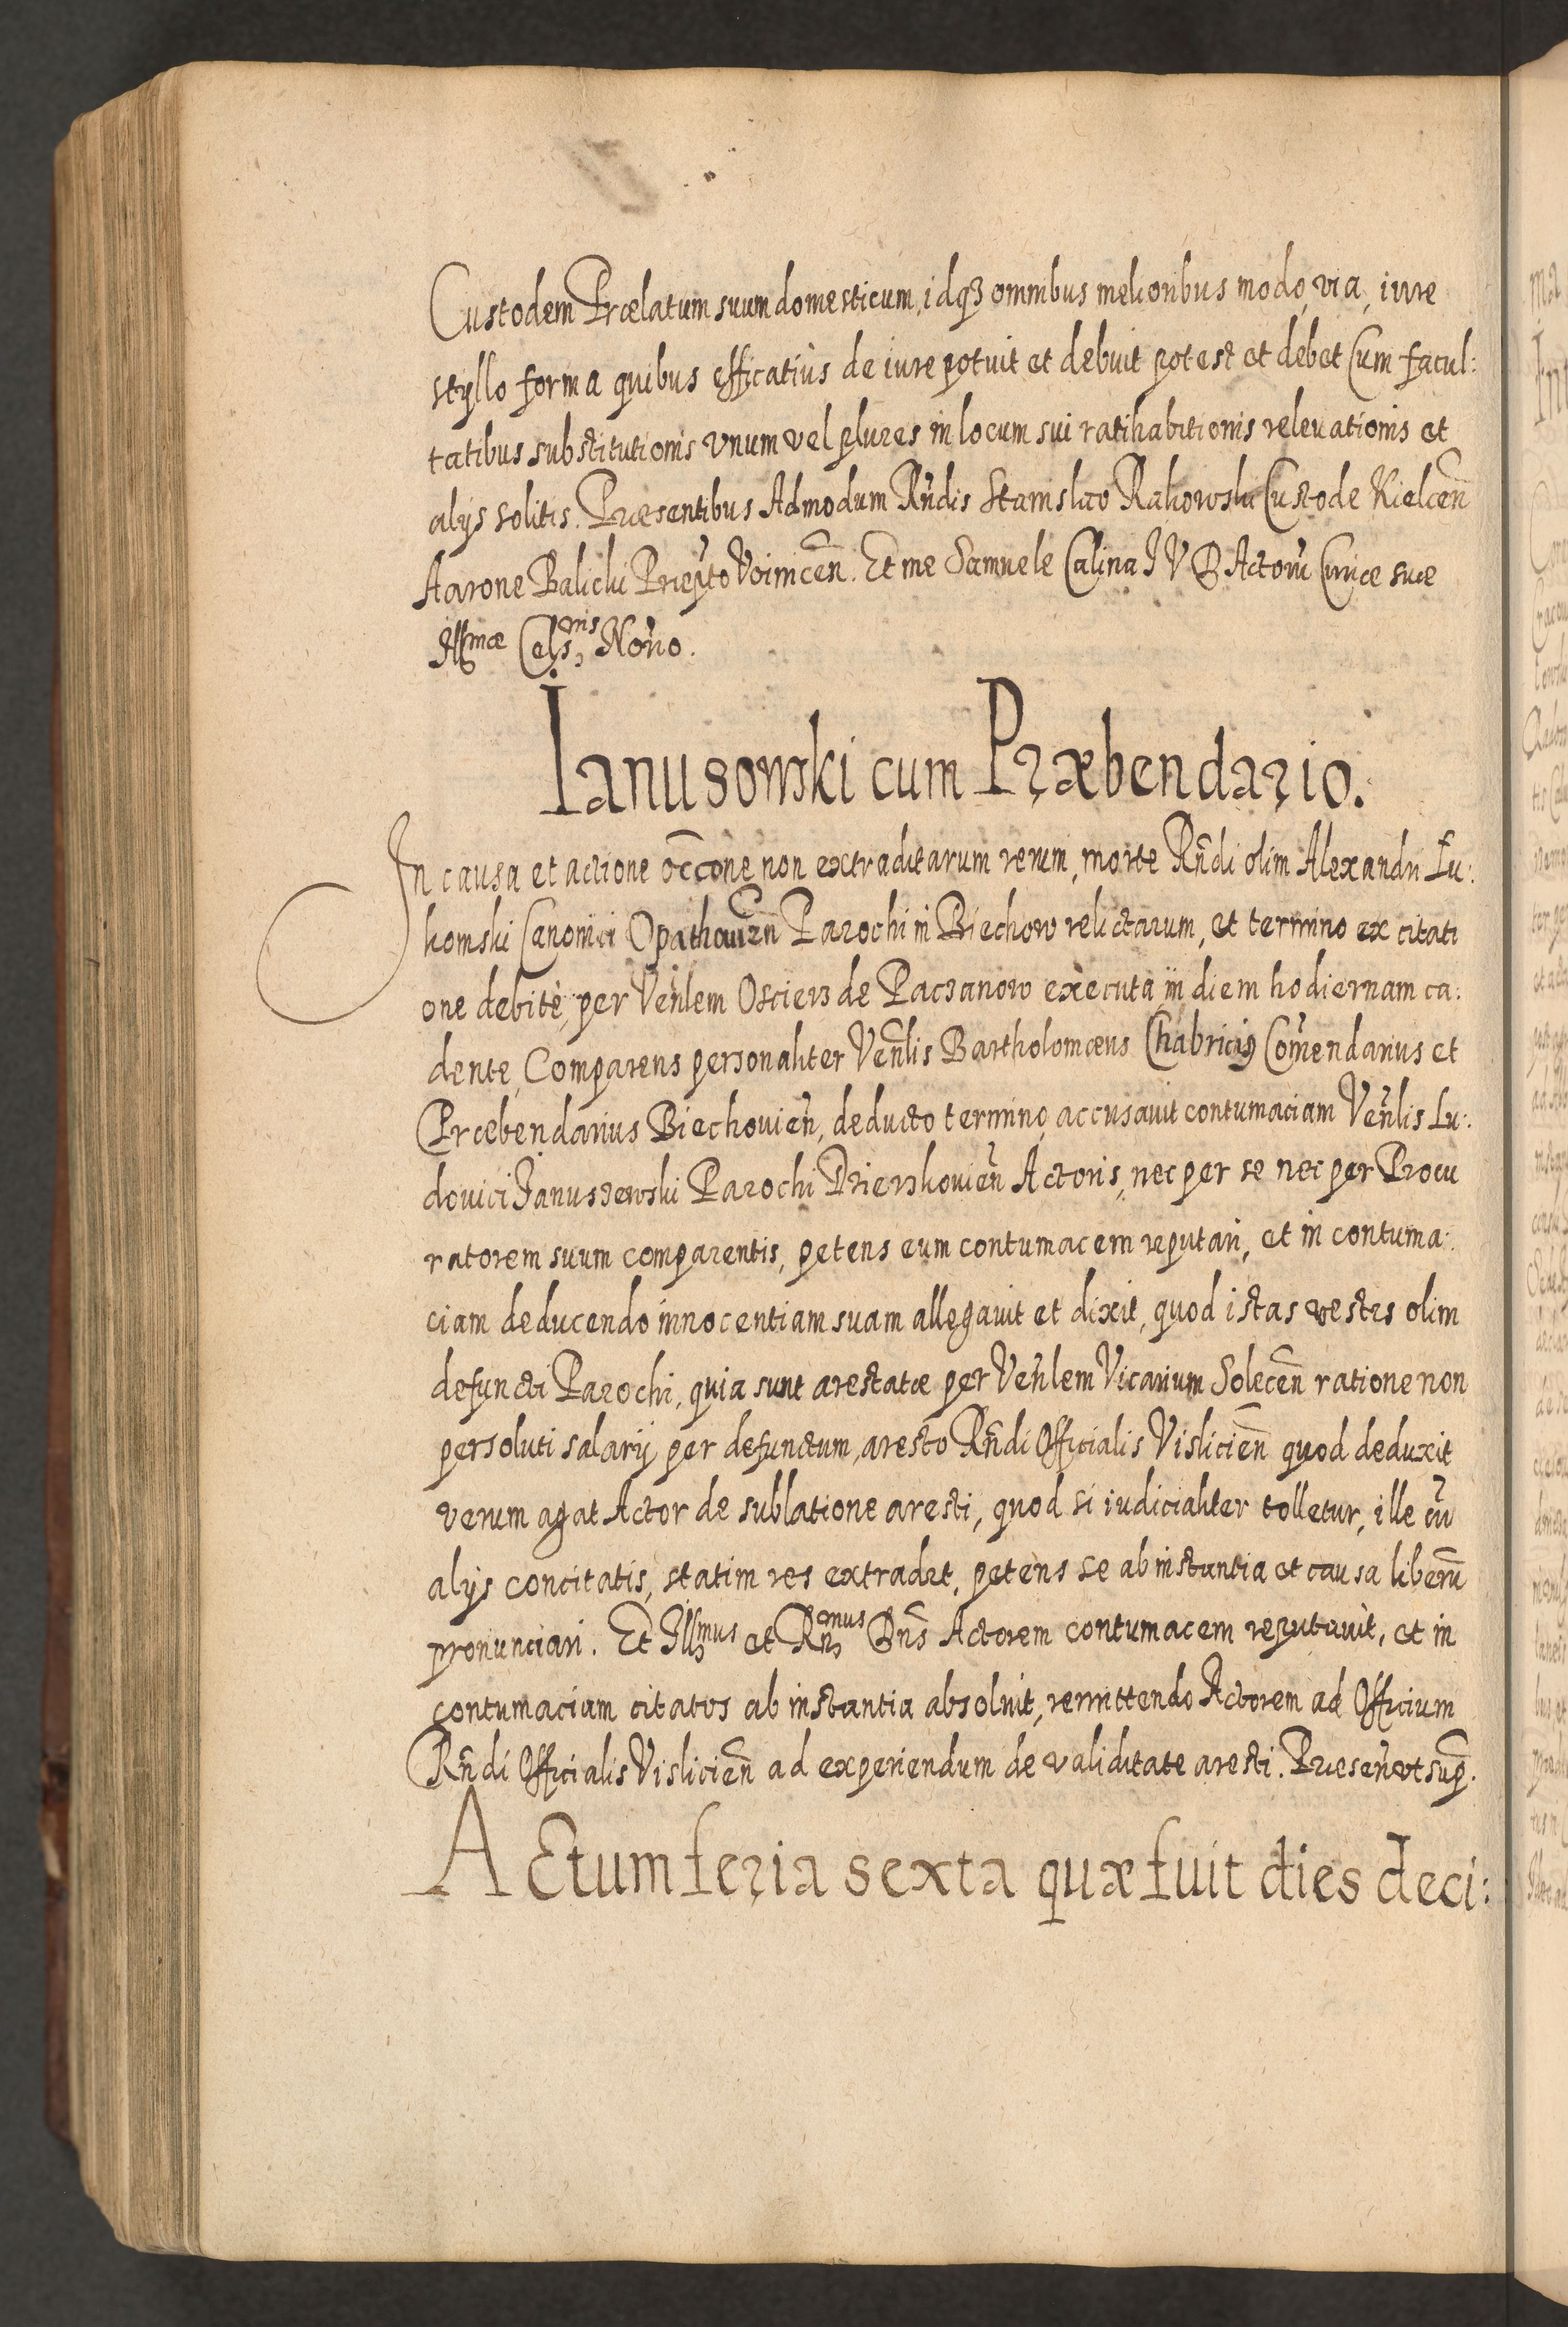 Custodem Prælatum suum domesticum, idq3 omnibus melioribus modo, via, iure
styllo forma quibus efficatius de iure potuit et debuit potest et debet Cum facul:
tatibus substitutionis vnum vel plures in locum sui ratihabitionis releuationis et
alys solitis. Præsentibus Admodum Rñdis Stanislao Rakowski Custode Kielceñ
Aarone Balicki Voinicen. Et me Samuele Calina I V D Actorū Curiæ suæ
Illmæ Cels:nis Nořio.
Ianusowski cum Præbendario.
In causa et actione occōne non extraditarum rerum, morte Rñdi olim Alexandri Lu:
komski Canonici Opathouien Parochi in Biechow relictarum, et termino ex citati
one debite per Veñlem Osciers de Pacsanow executa in diem hodiernam ca:
dente, Comparens personaliter Veñlis Bartholomæus Chabricig Comendarius et
Præbendarius Biechouieñ, deducto termino, accusauit contumaciam Veñlis Lu:
douici Januszewski Parochi Dzierzkouieñ Actoris, nec per se nec per Procu
ratorem suum comparentis, petens eum contumacem reputari, et in contuma:
ciam deducendo innocentiam suam allegauit et dixit, quod istas vestes olim
defuncti Parochi, quia sunt arestatæ per Veñlem Vicarium Soleceñ ratione non
persoluti salarij per defunctum, aresto Rñdi Officialis Vislicieñ quod deduxit
verum agat Actor de sublatione aresti, quod si iudicialiter tolletur, ille cū
alys concitatis, statim res extradet, petens se ab instantia et causa liberū
pronunciari. Et Illmus et Rñmus Dñs Actorem contumacem reputauit, et in
contumaciam citatos ab instantia absoluit, remittendo Actorem ad Officium
Rñdi Officialis Vislicieñ ad experiendum de validitate aresti. Præseñ vt sup.
Actum feria sexta quæ fuit dies deci: